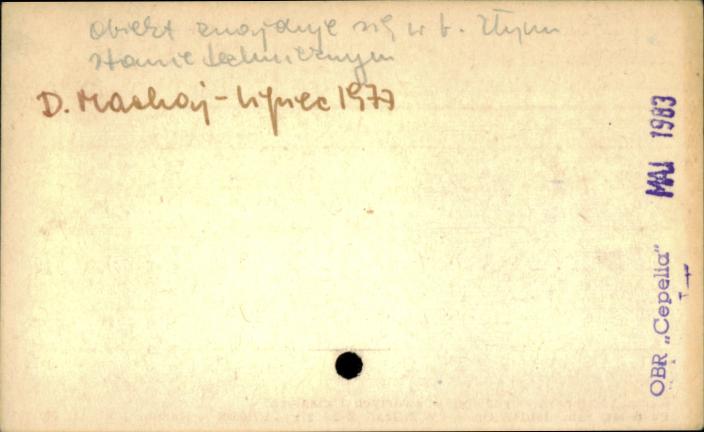 Obiekt znajduje się w b. złym
stanie technicznym
D. Machaj - lipiec 1977
OBR „Cepelia” MAJ 1983